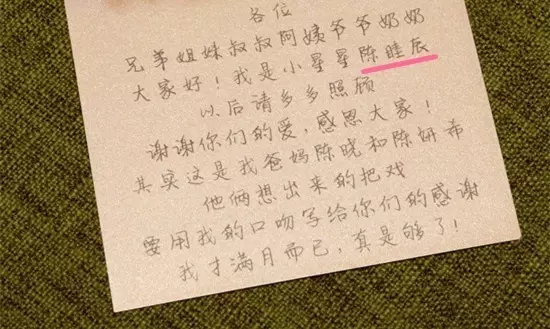 各位
兄弟姐妹叔叔阿姨爷爷奶奶
大家好！我是小星星陈睦辰
以后请多多照顾
谢谢你们的爱，感恩大家！
其实这是我爸妈陈晓和陈妍希
他俩想出来的把戏
要用我的口吻写给你们的感谢
我才满月而已，真是够了！